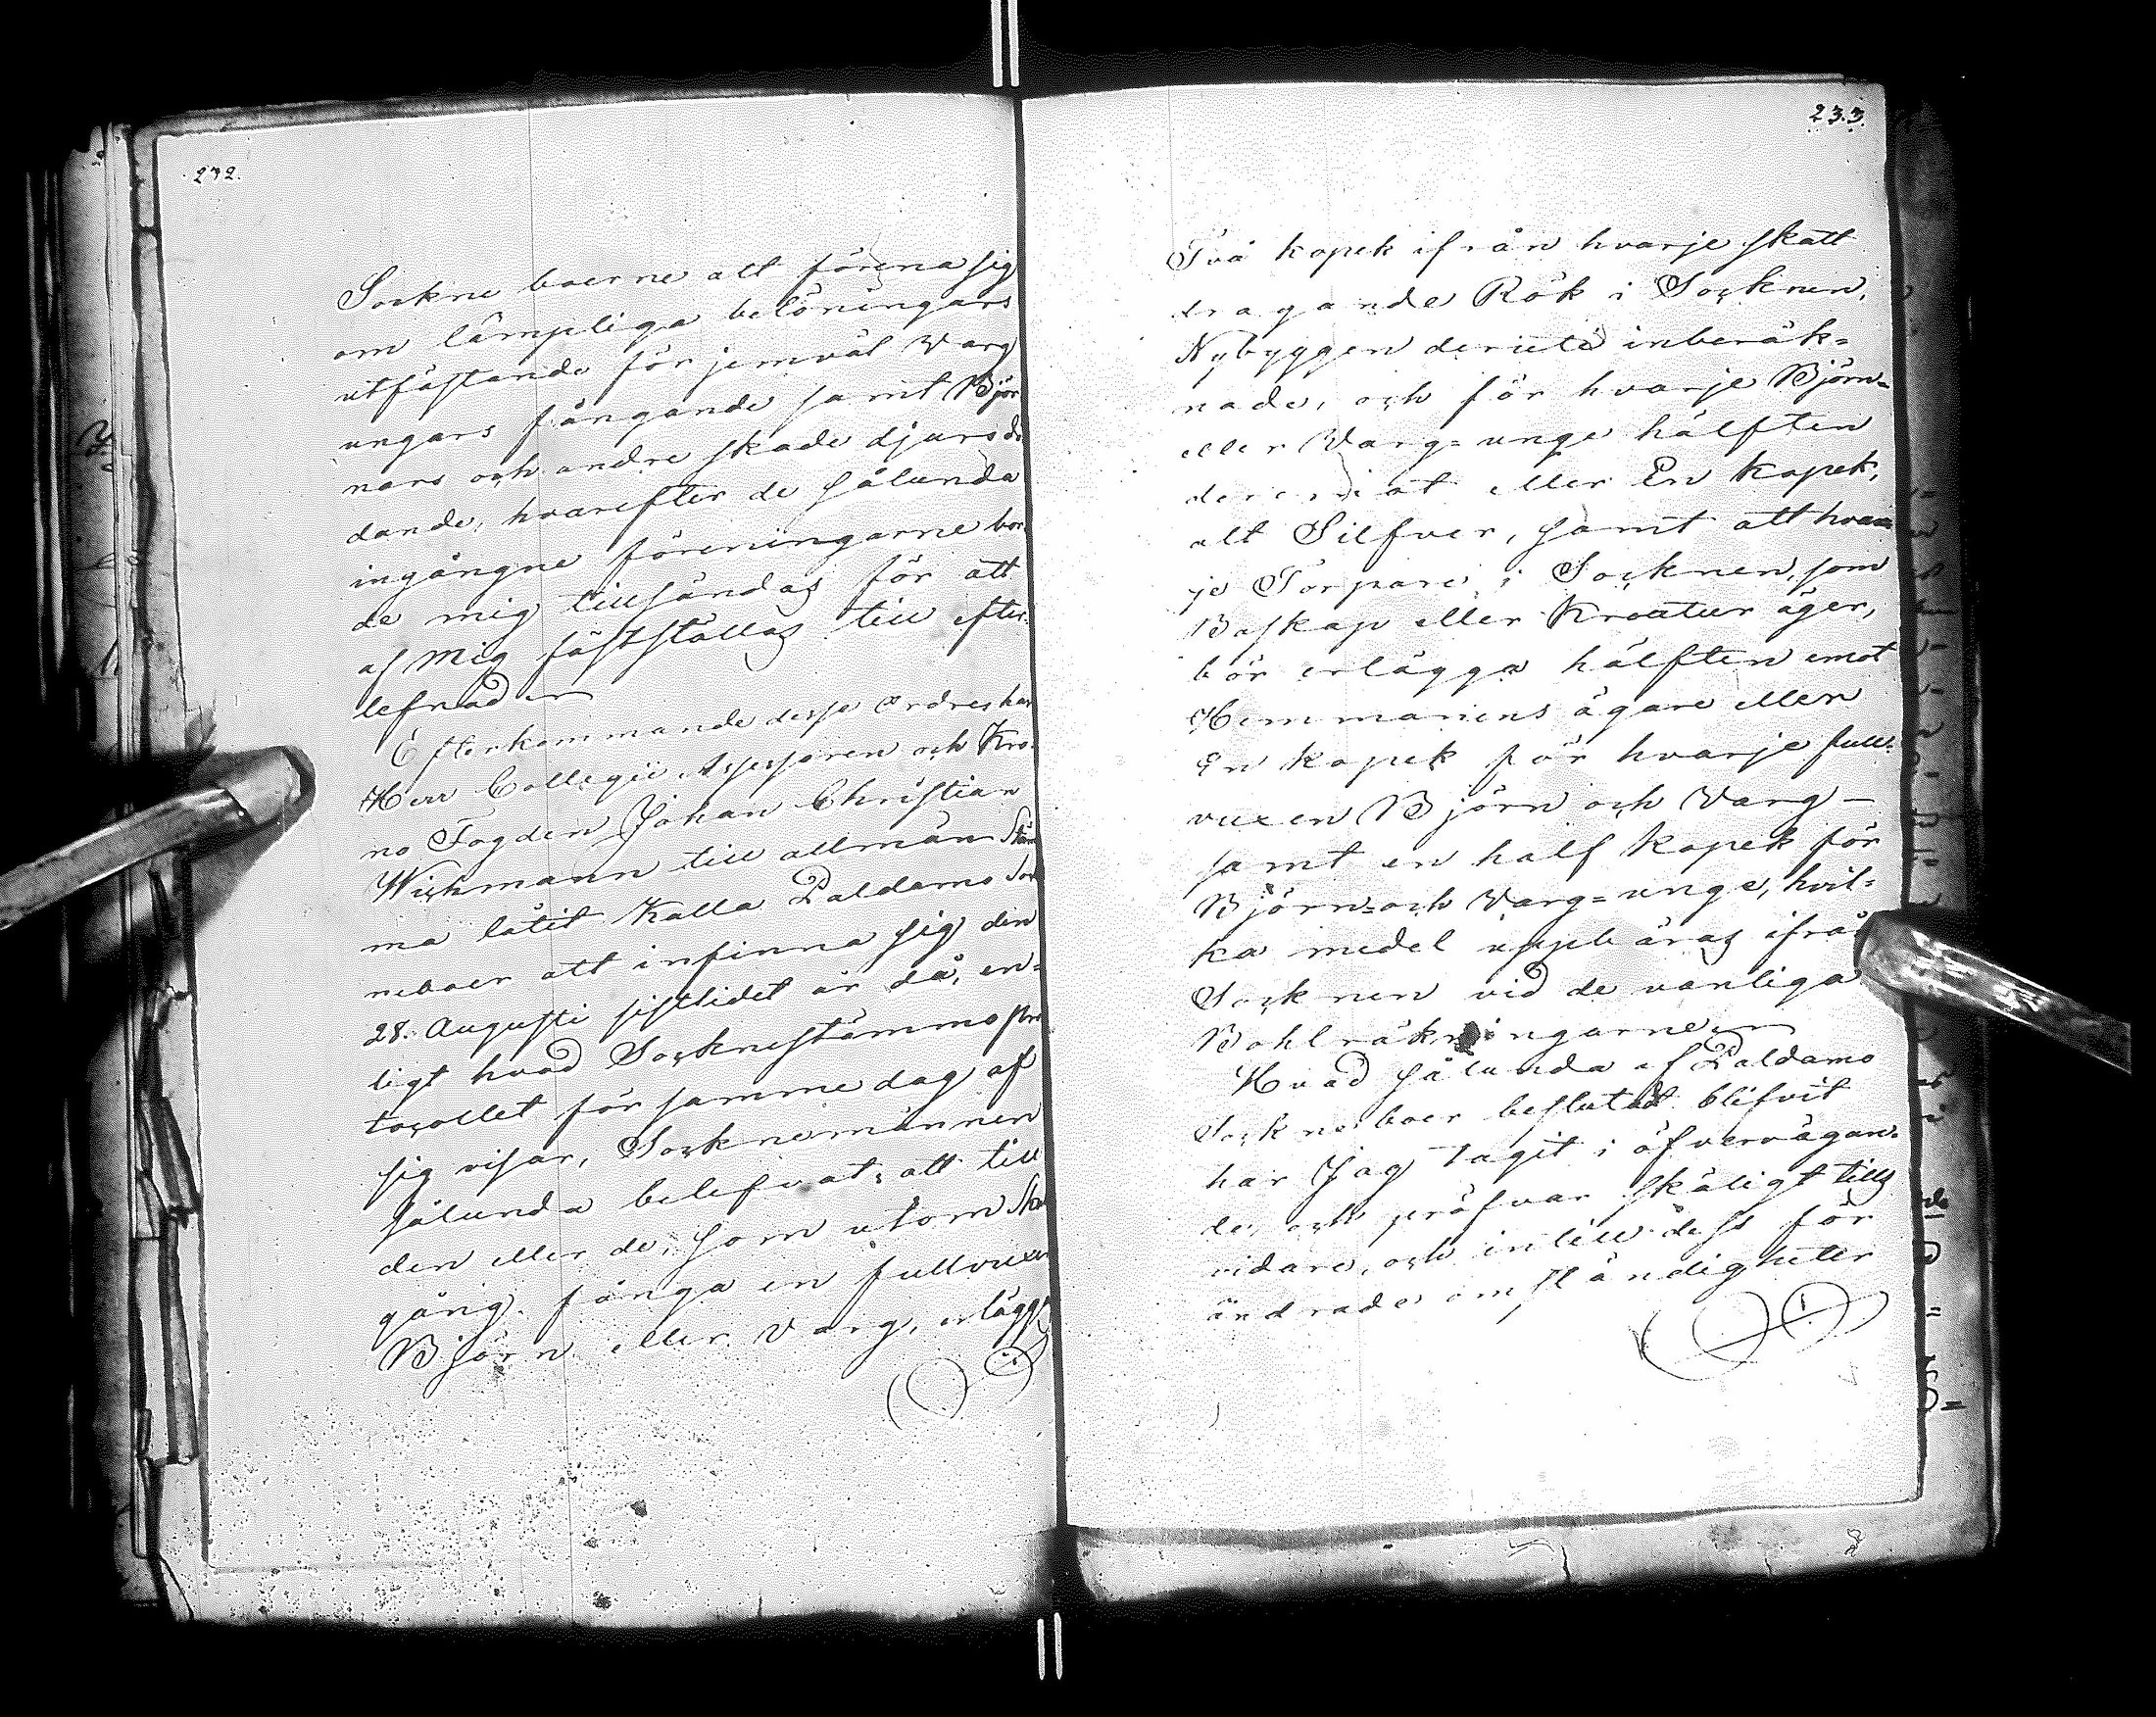 232.
Sockne boerne att förena sig
om lämpliga belöningars
utfästande för jemväl Varg
ungars fångande samt Björ
nars och andre skade djurs dö
dande, hvarefter de sålunda
ingångne föreningarne bor
de mig tillsändas för att
af mig fastställas till efter-
lefnad
Efterkommande desse Ordres har
Herr Collegii Assessoren och Kro-
no Fogden Johan Christian
Wichmann till allmän Stäm
ma låtit Kalla Paldamo Sock
neboer att infinna sig den
28. Augusti sistlidet år då, en-
ligt hvad Socknestämmo pro
tocollet för samme dag af
sig visar, Socknemännen
sålunda belefvat; att till
den eller de, som utom Skall
gång fånga en fullvuxen
Björn eller Varg, erlägga
233.
Två kopek ifrån hvarje skatt
dragande Rök i Socknen,
Nybyggen deruti inberäk=
nade, och för hvarje Björn=
eller Varg=unge hälften
deremot eller En kopek,
alt Silfver, samt att hvar
je Torpare i Socknen, som
Boskap eller Kreatur äger,
bör erlägga hälften emot
Hemmanens ägare eller
En kopek för hvarje full-
vuxen Björn och Varg –
samt en half kopek för
Björn=och Varg=unge, hvil=
ka medel uppbäras ifrån
Socknen vid de vanliga
Bohlräkningarne
Hvad sålunda af Paldamo
Sockneboer beslutat blifvit
har Jag tagit i öfvervägan-
de, och pröfvar skäligt tills
vidare, och intill dess för
ändrade omständigheter